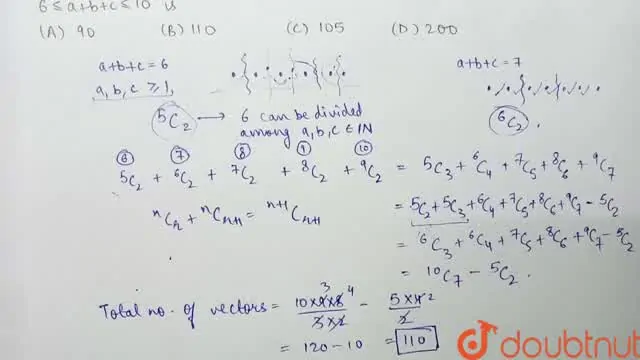 6 ≤ a+b+c ≤ 10 is
(A) 90 (B) 110 (C) 105 (D) 200
a+b+c = 6
a, b, c ≥ 1,
⁵C₂ → 6 can be divided
among a, b, c ∈ IN
a+b+c = 7
⁶C₂ .
⑥ ⑦ ⑧ ⑨ ⑩
⁵C₂ + ⁶C₂ + ⁷C₂ + ⁸C₂ + ⁹C₂ = ⁵C₃ + ⁶C₄ + ⁷C₅ + ⁸C₆ + ⁹C₇
= ⁵C₂ + ⁵C₃ + ⁶C₄ + ⁷C₅ + ⁸C₆ + ⁹C₇ - ⁵C₂
ⁿCₙ + ⁿCₙ₊₁ = ⁿ⁺¹Cₙ₊₁
= ⁶C₃ + ⁶C₄ + ⁷C₅ + ⁸C₆ + ⁹C₇ - ⁵C₂
= ¹⁰C₇ - ⁵C₂ .
Total no. of vectors = 10×9×8/3×2 - 5×4/2
3 4 2
= 120 - 10 = 110
doubtnut